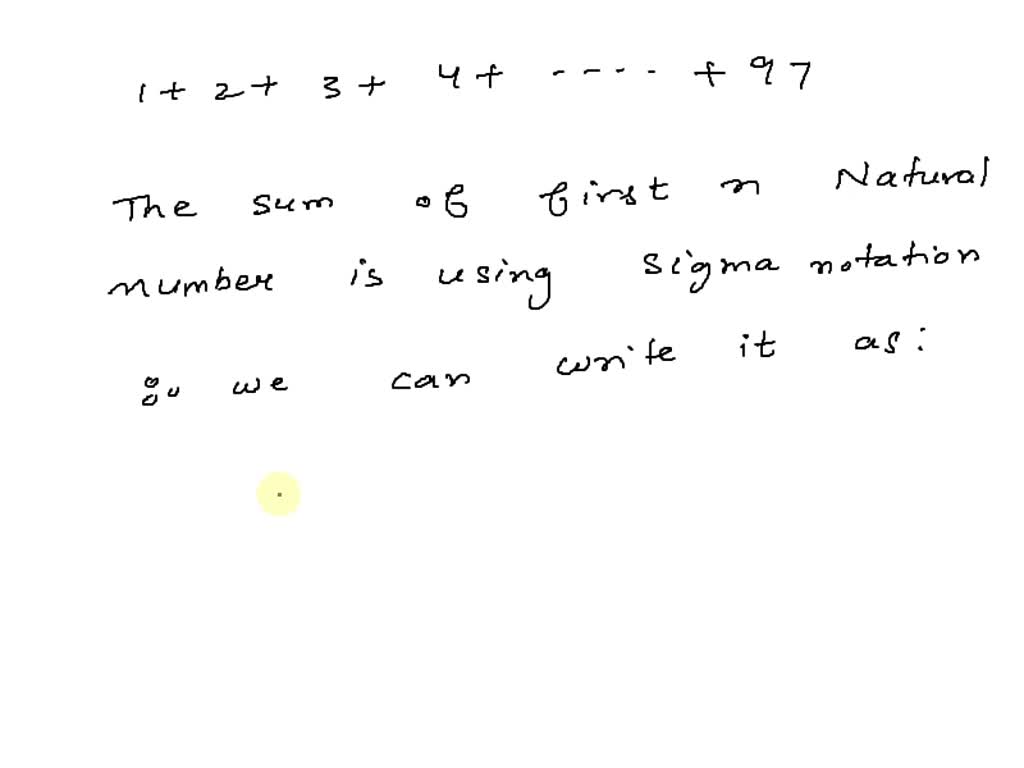 1 + 2 + 3 + 4 + ---- + 97
The sum of first n Natural
number is using sigma notation
∴ we can write it as: